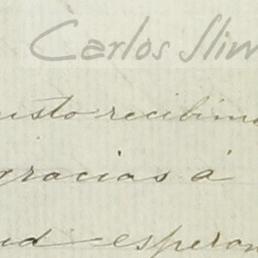 Carlos Slim
usto recibim
gracias á
ud esperam